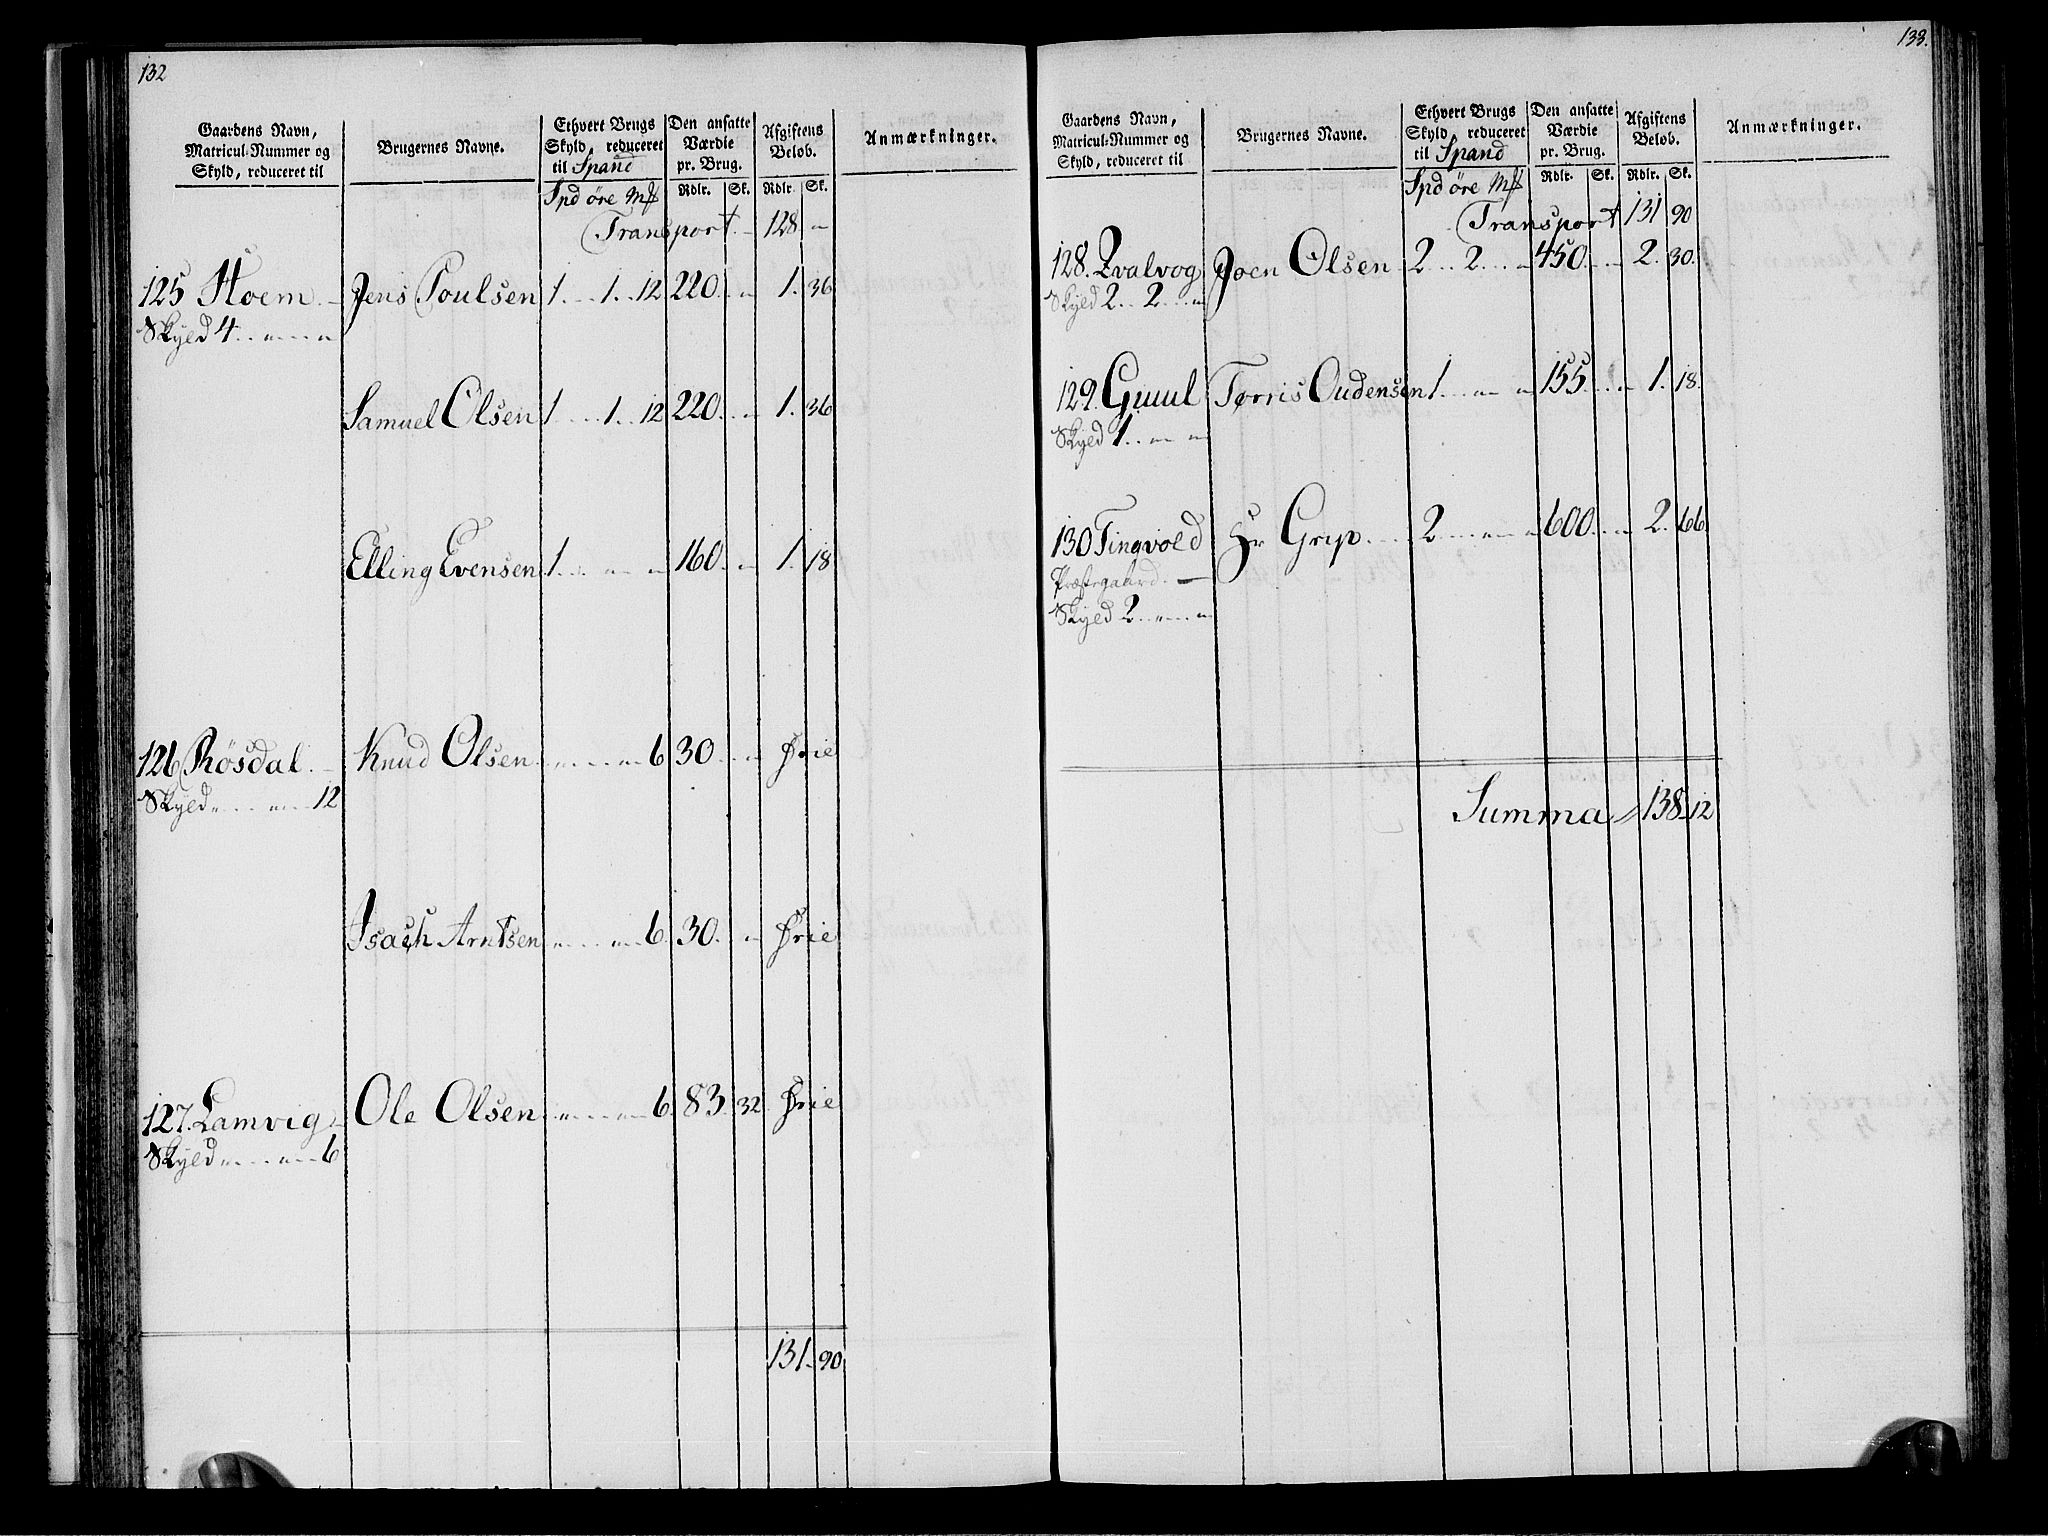 132
Gaardens Navn, Matricul-Nummer og Skyld, reduceret til | Brugernes Navne. | Ethvert Brugs Skyld, reduceret til Spand | Den ansatte Værdie pr. Brug. | Afgiftens Beløb. | Anmærkninger.
Spd öre Mſ | Rdlr. | Sk. | Rdlr. | Sk.
Transport.. 128 "
125 Hoem.. Jens Poulsen 1...1..12 220.." 1. 36
Skyld 4.."..."
Samuel Olsen 1...1..12 220.." 1. 36
Elling Evensen 1..."..." 160.." 1. 18
126 Rösdal.. Knud Olsen..."..."6 30.." Frie
Skyld..."..."12
Isach Arntsen..."..."6. 30.." Frie
127. Lamvig.. Ole Olsen..."..."6. 83. 32. Frie
Skyld..."..."6
131. 90
133.
Gaardens Navn, Matricul-Nummer og Skyld, reduceret til | Brugernes Navne. | Ethvert Brugs Skyld, reduceret til Spand | Den ansatte Værdie pr. Brug. | Afgiftens Beløb. | Anmærkninger.
Spd öre Mſ | Rdlr. | Sk. | Rdlr. | Sk.
Transport 131 90
128. Qvalvog Joen Olsen 2...2..." 450..." 2. 30.
Skyld 2..2..."
129. Guul Tørris Oudensen 1..."..." 155..." 1. 18.
Skyld 1.."..."
130 Tingvold Hr Grip.... 2..."..." 600..." 2. 66
Præstegaard.
Skyld 2.."..."
Summa 138 12